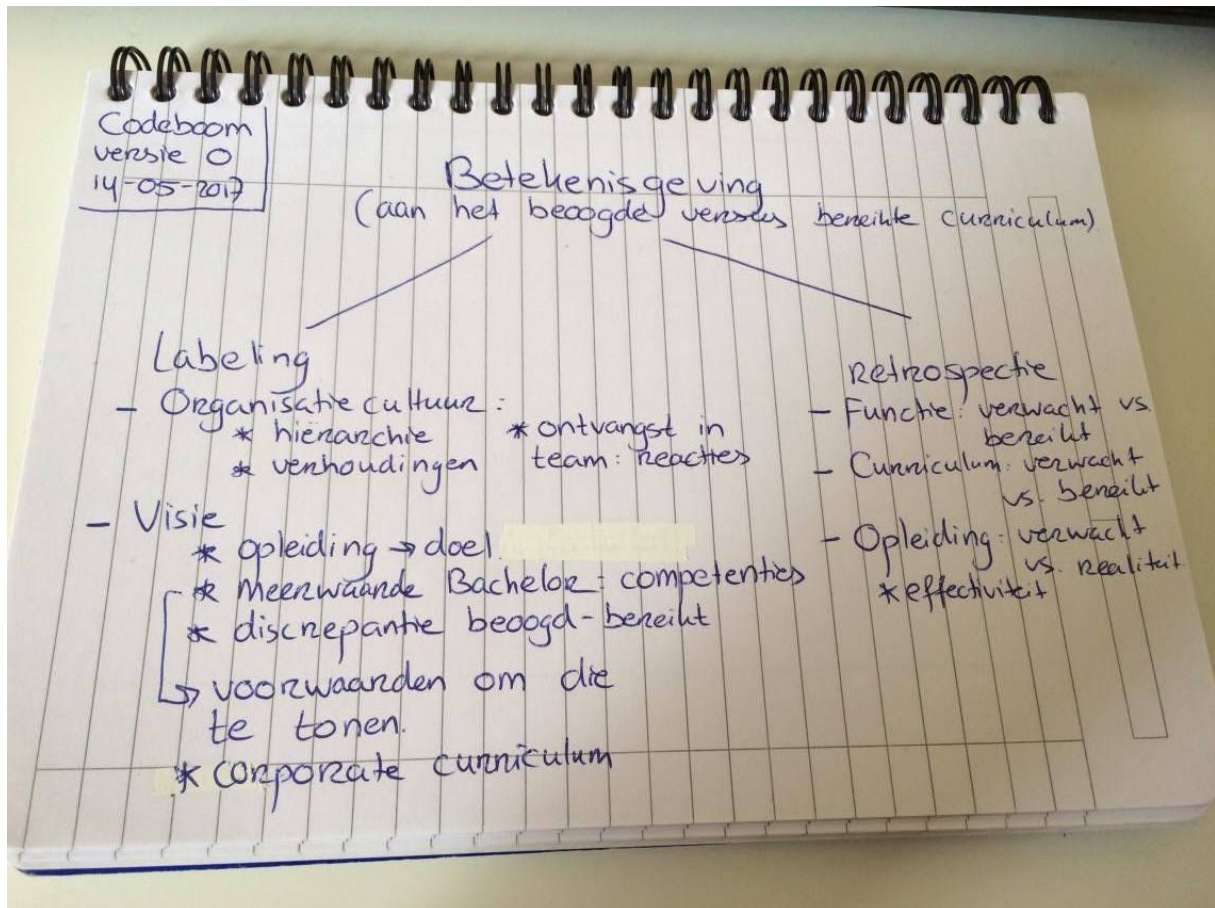 Codeboom
versie 0
14-05-2017
Betekenisgeving
(aan het beoogde versus bereikte curriculum)
Labeling
- Organisatiecultuur:
* hiërarchie
* verhoudingen
* ontvangst in
team: reacties
- Visie
* opleiding → doel
* meerwaarde Bachelor: competenties
* discrepantie beoogd-bereikt
↳ voorwaarden om die
te tonen.
* corporate curriculum
Retrospectie
- Functie: verwacht vs.
bereikt
- Curriculum: verwacht
vs. bereikt
- Opleiding: verwacht
vs. realiteit
* effectiviteit